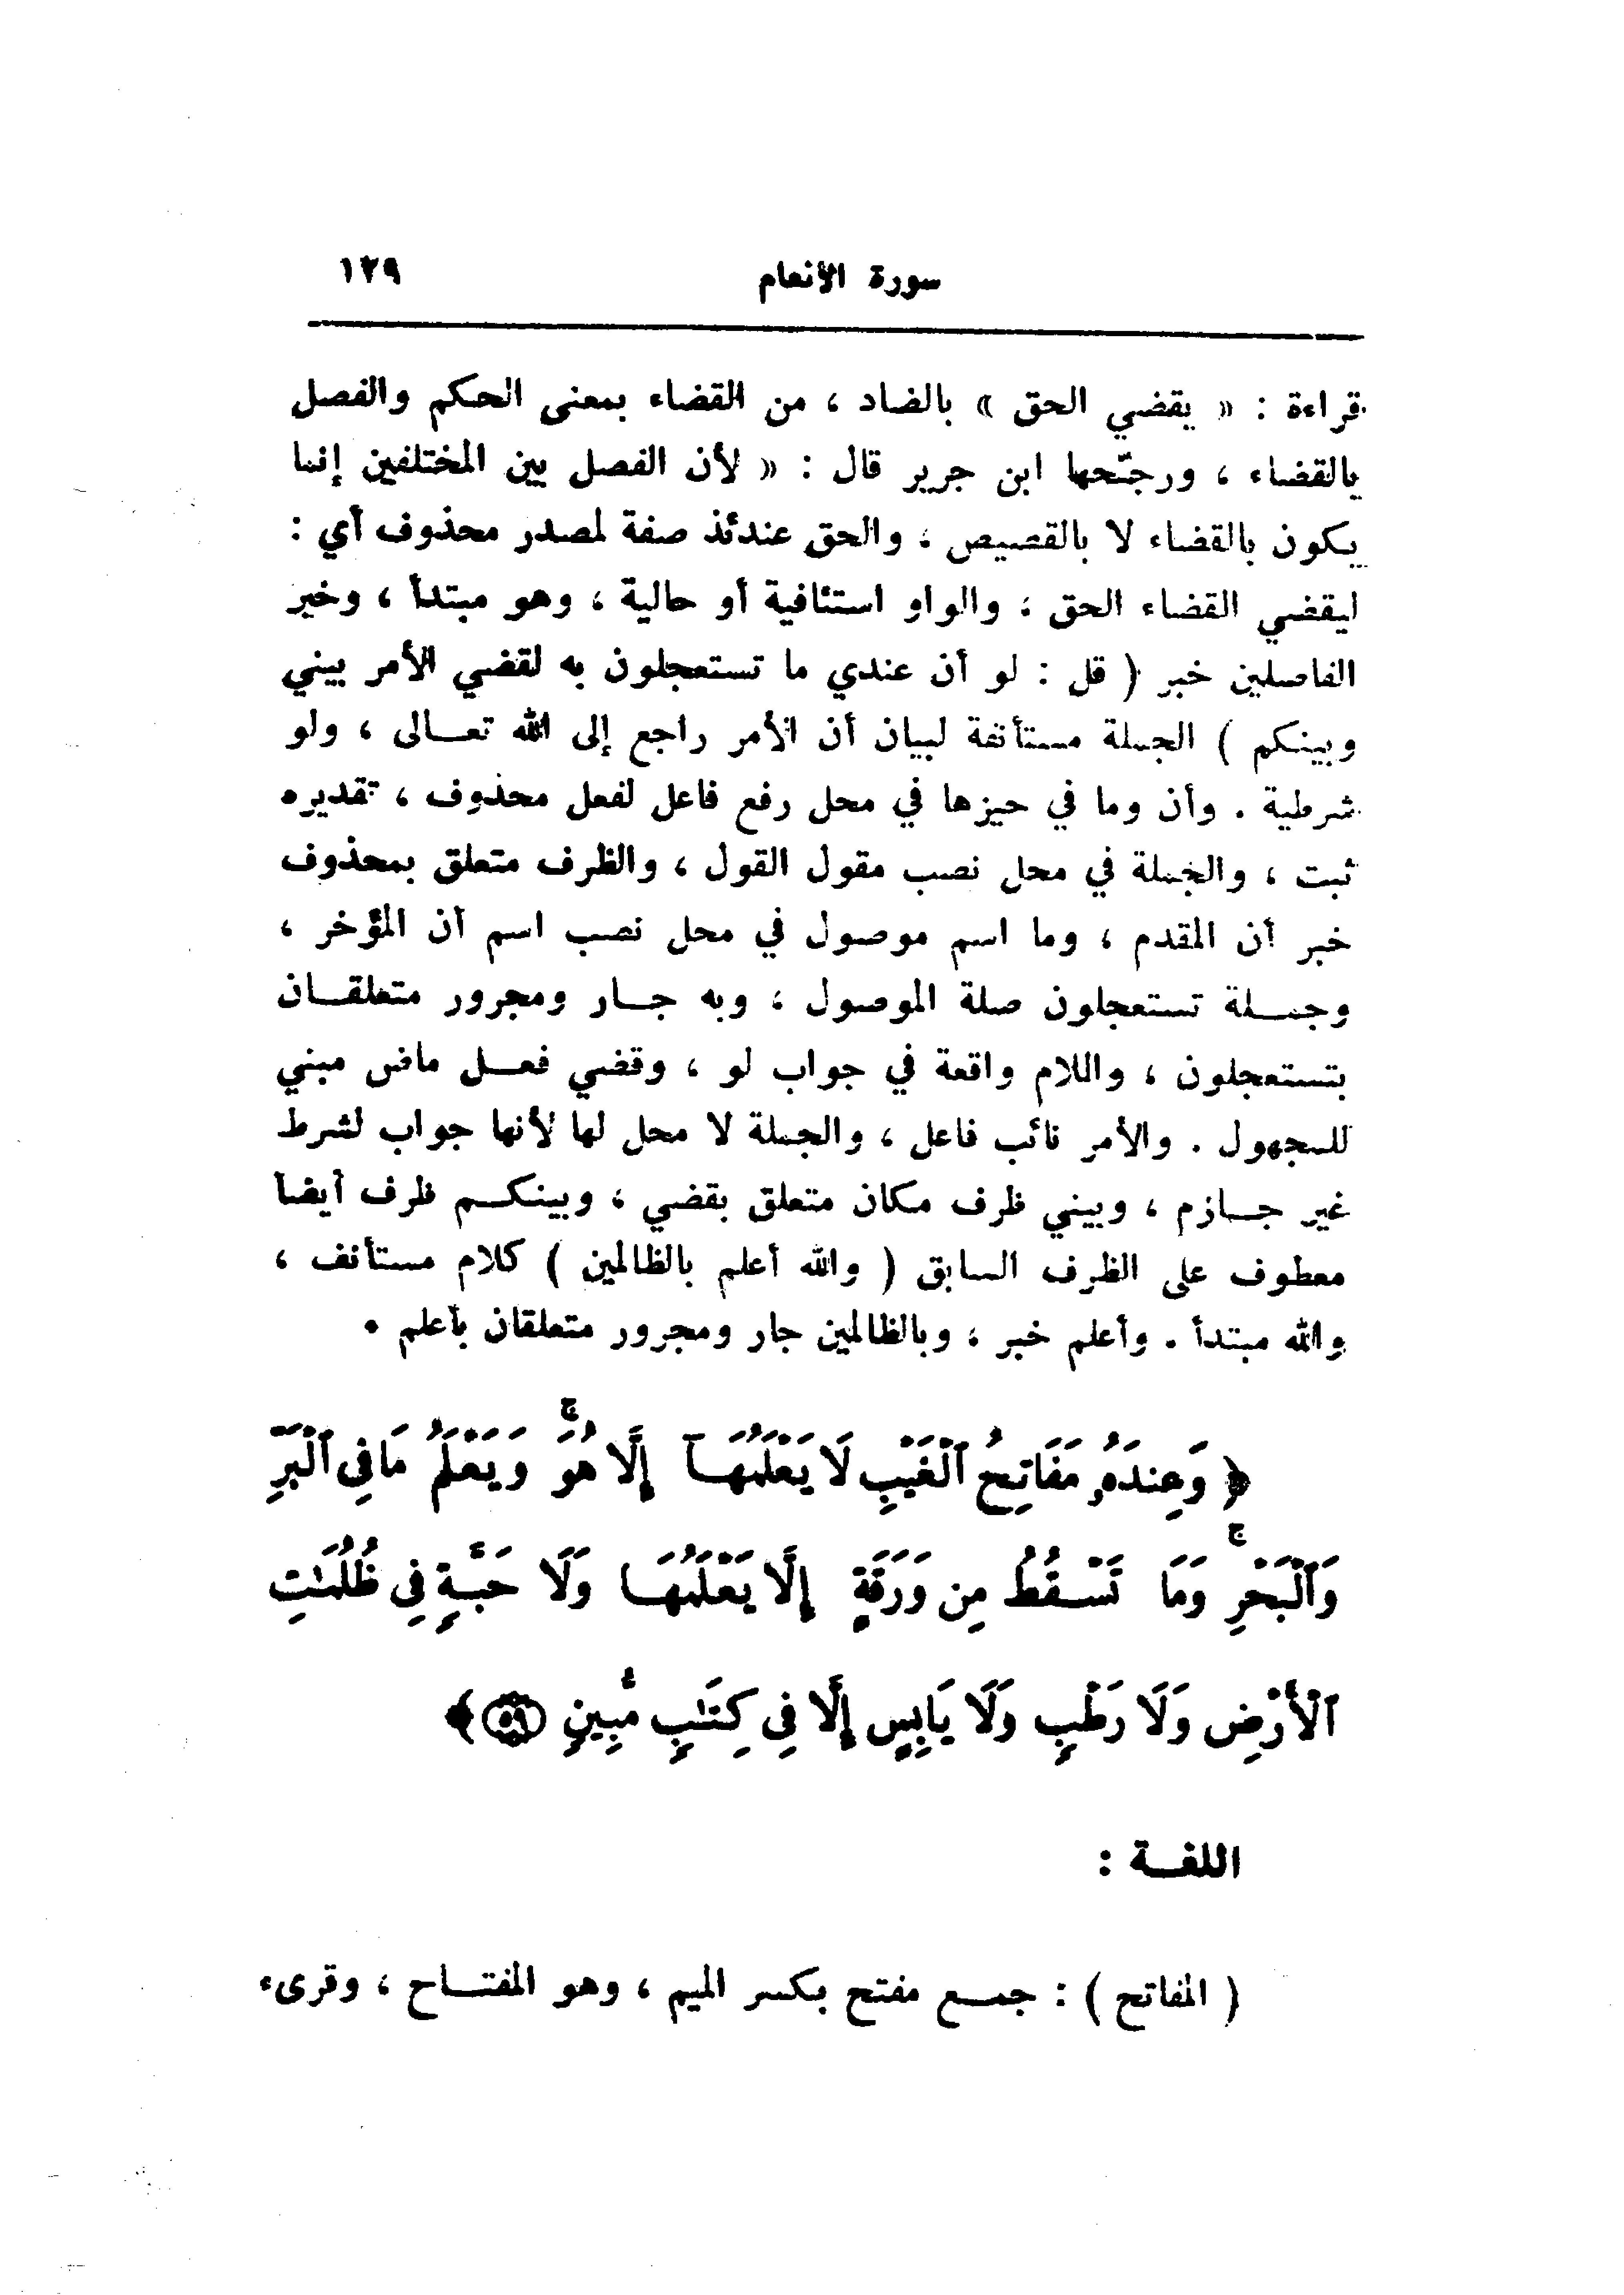 سورة الأنعام ١٢٩
قراءة : « يقضي الحق » بالضاد ، من القضاء بمعنى الحكم والفصل
بالقضاء ، ورجّحها ابن جرير قال : « لأن الفصل بين المختلفين إنما
يكون بالقضاء لا بالقصيص ، والحق عندئذ صفة لمصدر محذوف أي :
ليقضي القضاء الحق ، والواو استئنافية أو حالية ، وهو مبتدأ ، وخير
الفاصلين خبر ( قل : لو أن عندي ما تستعجلون به لقضي الأمر بيني
وبينكم ) الجملة مستأنفة لبيان أن الأمر راجع إلى الله تعالى ، ولو
شرطية . وأن وما في حيزها في محل رفع فاعل لفعل محذوف ، تقديره
ثبت ، والجملة في محل نصب مقول القول ، والظرف متعلق بمحذوف
خبر أن المقدم ، وما اسم موصول في محل نصب اسم أن المؤخر ،
وجملة تستعجلون صلة الموصول ، وبه جار ومجرور متعلقان
بتستعجلون ، واللام واقعة في جواب لو ، وقضي فعل ماض مبني
للمجهول . والأمر نائب فاعل ، والجملة لا محل لها لأنها جواب لشرط
غير جازم ، وبيني ظرف مكان متعلق بقضي ، وبينكم ظرف أيضاً
معطوف على الظرف السابق ( والله أعلم بالظالمين ) كلام مستأنف ،
والله مبتدأ . وأعلم خبر ، وبالظالمين جار ومجرور متعلقان بأعلم .
﴿ وَعِندَهُۥ مَفَاتِحُ ٱلْغَيْبِ لَا يَعْلَمُهَآ إِلَّا هُوَ ۚ وَيَعْلَمُ مَا فِى ٱلْبَرِّ
وَٱلْبَحْرِ ۚ وَمَا تَسْقُطُ مِن وَرَقَةٍ إِلَّا يَعْلَمُهَا وَلَا حَبَّةٍ فِى ظُلُمَٰتِ
ٱلْأَرْضِ وَلَا رَطْبٍ وَلَا يَابِسٍ إِلَّا فِى كِتَٰبٍ مُّبِينٍ ٥٩ ﴾
اللغة :
( المفاتح ) : جمع مفتح بكسر الميم ، وهو المفتاح ، وقرىء